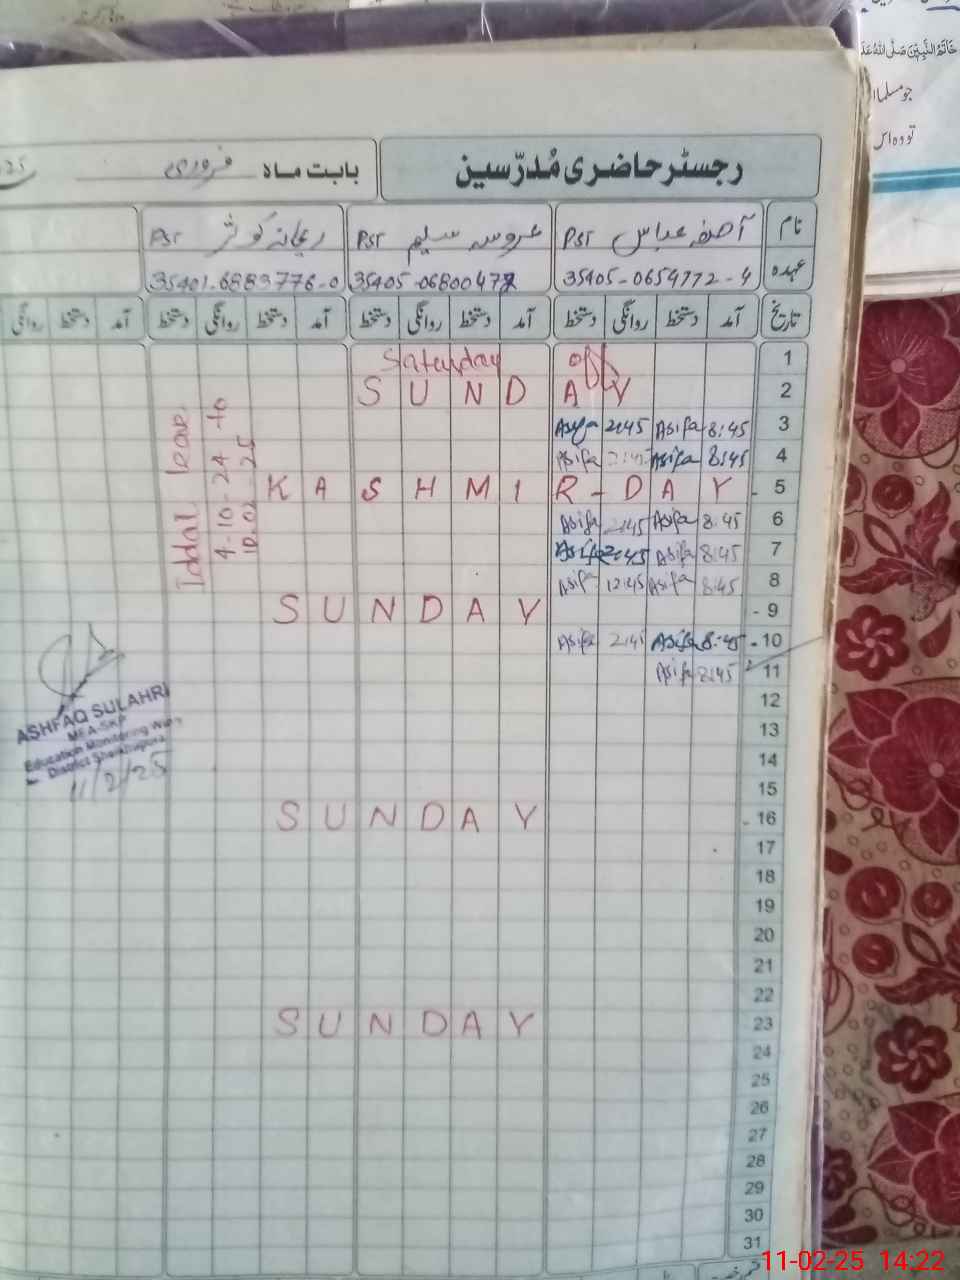 خَاتَمُ النَّبِیّٖنَ صَلَّی اللہُ
جو مسلما
تو وہ اس
رجسٹر حاضری مُدرّسین
بابت ماہ فروری
نام آصفہ عباس PST عروسہ سلیم PST ریحانہ کوثر PST
عہدہ 35405-0654772-4 35405-0680047 35401-6883776-0
تاریخ آمد دستخط روانگی دستخط آمد دستخط روانگی دستخط آمد دستخط روانگی دستخط آمد دستخط روانگی
1 Saturday off
2 SUNDAY
3 8:45 Asifa 2:45 Asifa
4 8:45 Asifa 2:45 Asifa
5 KASHMIR-DAY
6 8:45 Asifa 2:45 Asifa
7 8:45 Asifa 2:45 Asifa
8 8:45 Asifa 12:45 Asifa
9 SUNDAY
10 8:45 Asifa 2:45 Asifa
11 8:45 Asifa
12
13
14
15
16 SUNDAY
17
18
19
20
21
22
23 SUNDAY
24
25
26
27
28
29
30
31
Iddat leave
4-10-24 to
10-02-25
ASHFAQ SULAHRI
MEA-SKP
Education Monitoring Wing
District Sheikhupura
11/2/25
11-02-25 14:22